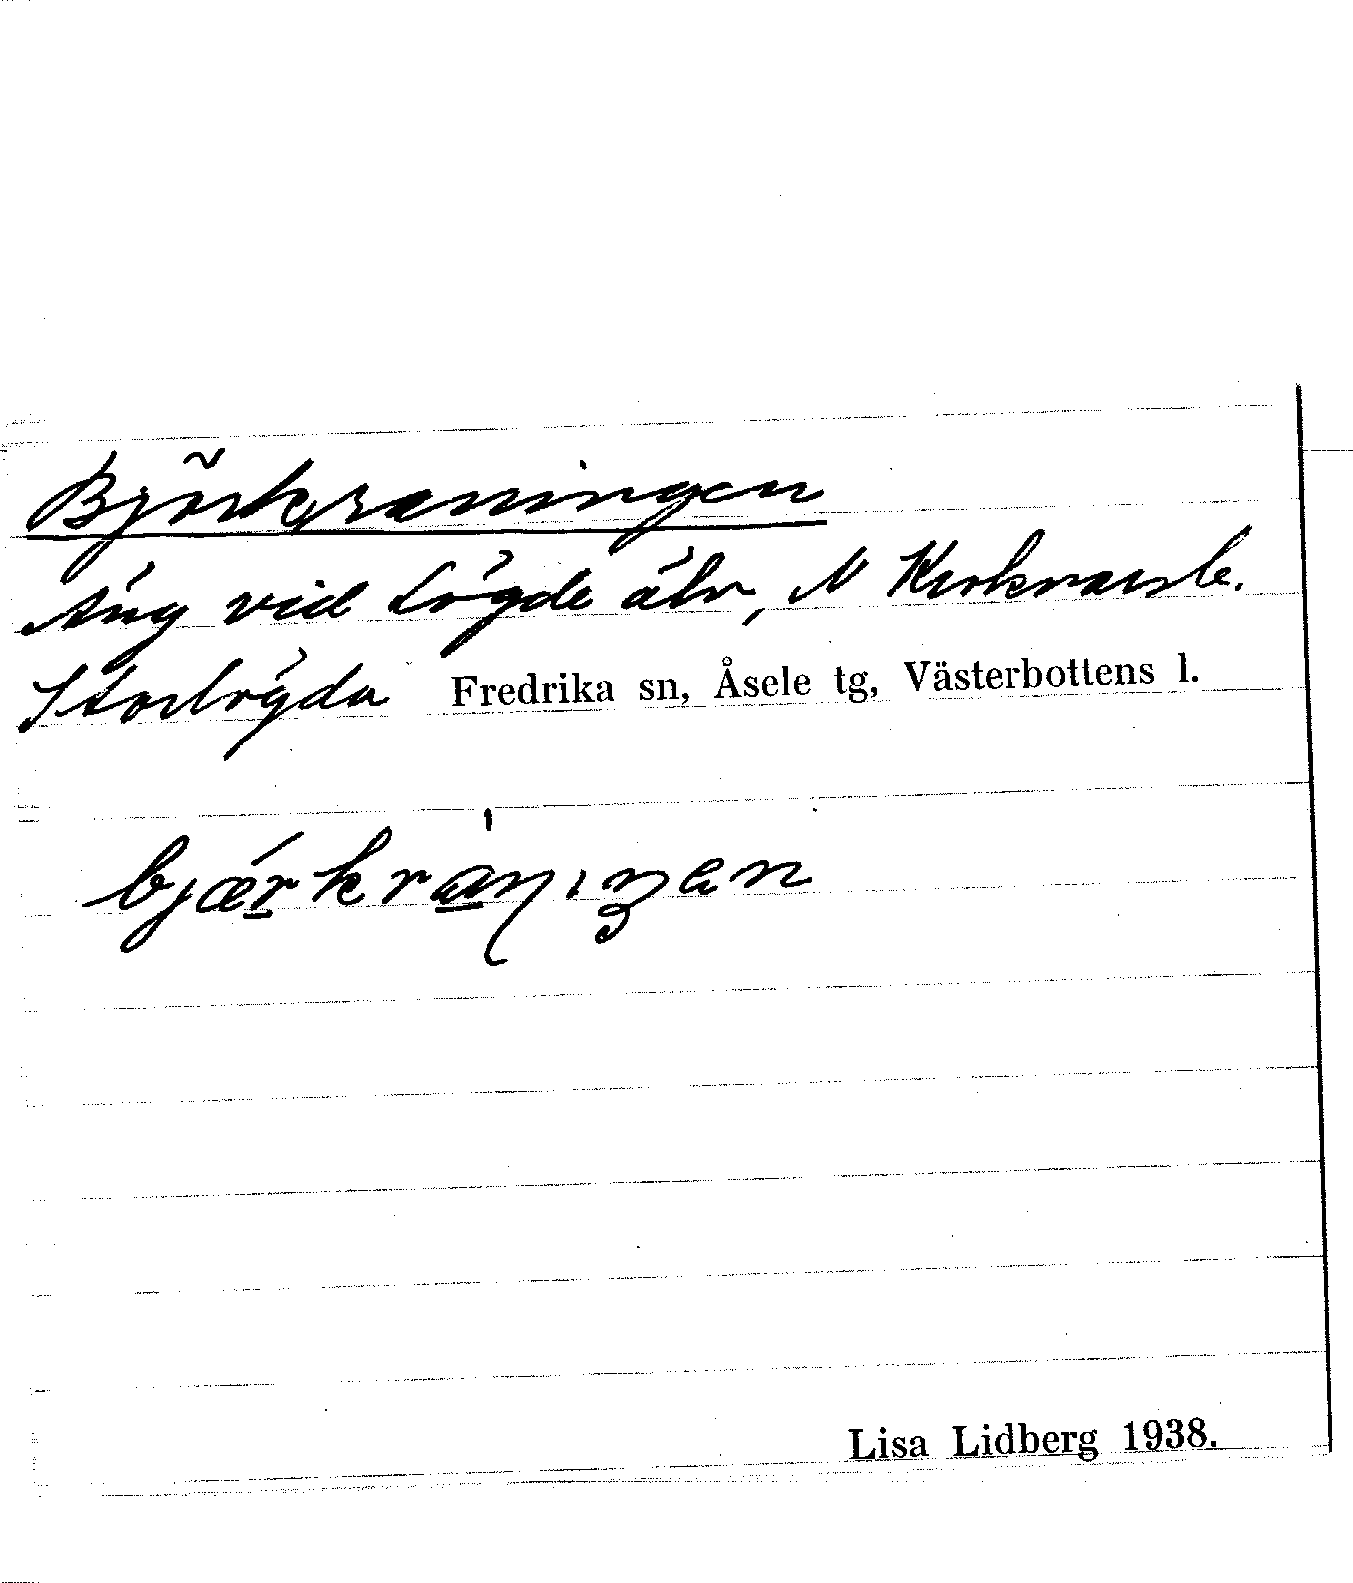 Björkraningen
Äng vid Lögde älv, N
Storlögda Fredrika sn, Åsele tg, Västerbottens l.
bjæ´rkra̱ṇıŋen
Lisa Lidberg 1938.